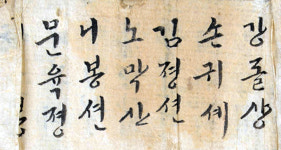 강돌상
손귀셰
김졍션
노막산
니봉션
문육졍